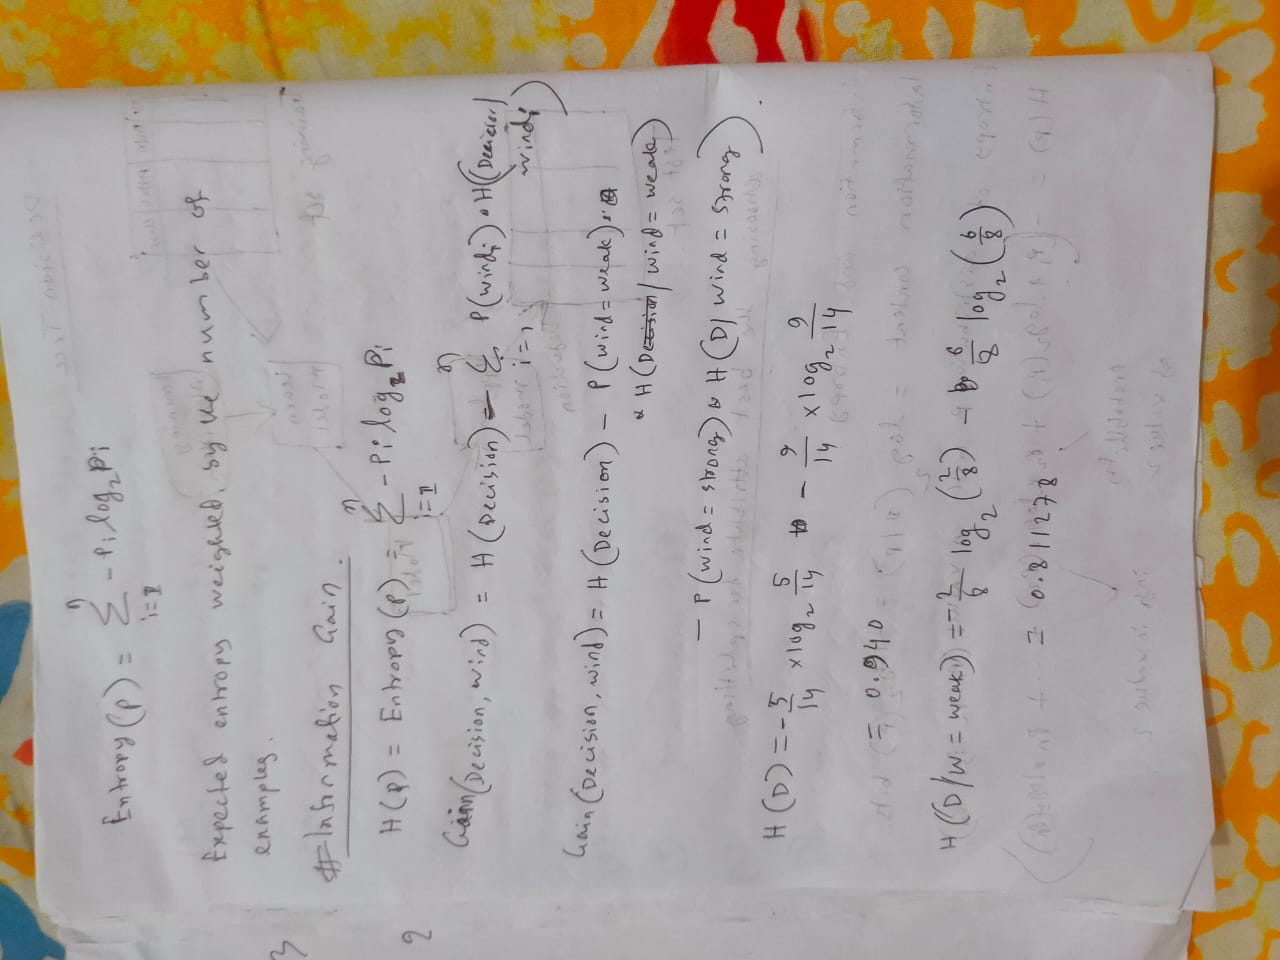 Entropy (P) = n Σ i=1 - Pi log2 Pi
Expected entropy weighted by the number of
examples.
# Information Gain.
H(P) = Entropy (P) = n Σ i=1 - Pi log2 Pi
Gain(Decision, wind) = H(Decision) - n Σ i=1 P(windi) • H(Decision/
windi)
Gain(Decision, wind) = H(Decision) - P(wind = weak) •
* H(Decision / wind = weak)
- P(wind = strong) * H(D/ wind = strong).
H(D) = - 5/14 × log2 5/14 - 9/14 × log2 9/14
= 0.940
H(D/W = weak) = - 2/8 log2 (2/8) - 6/8 log2 (6/8)
= 0.811278
3
2